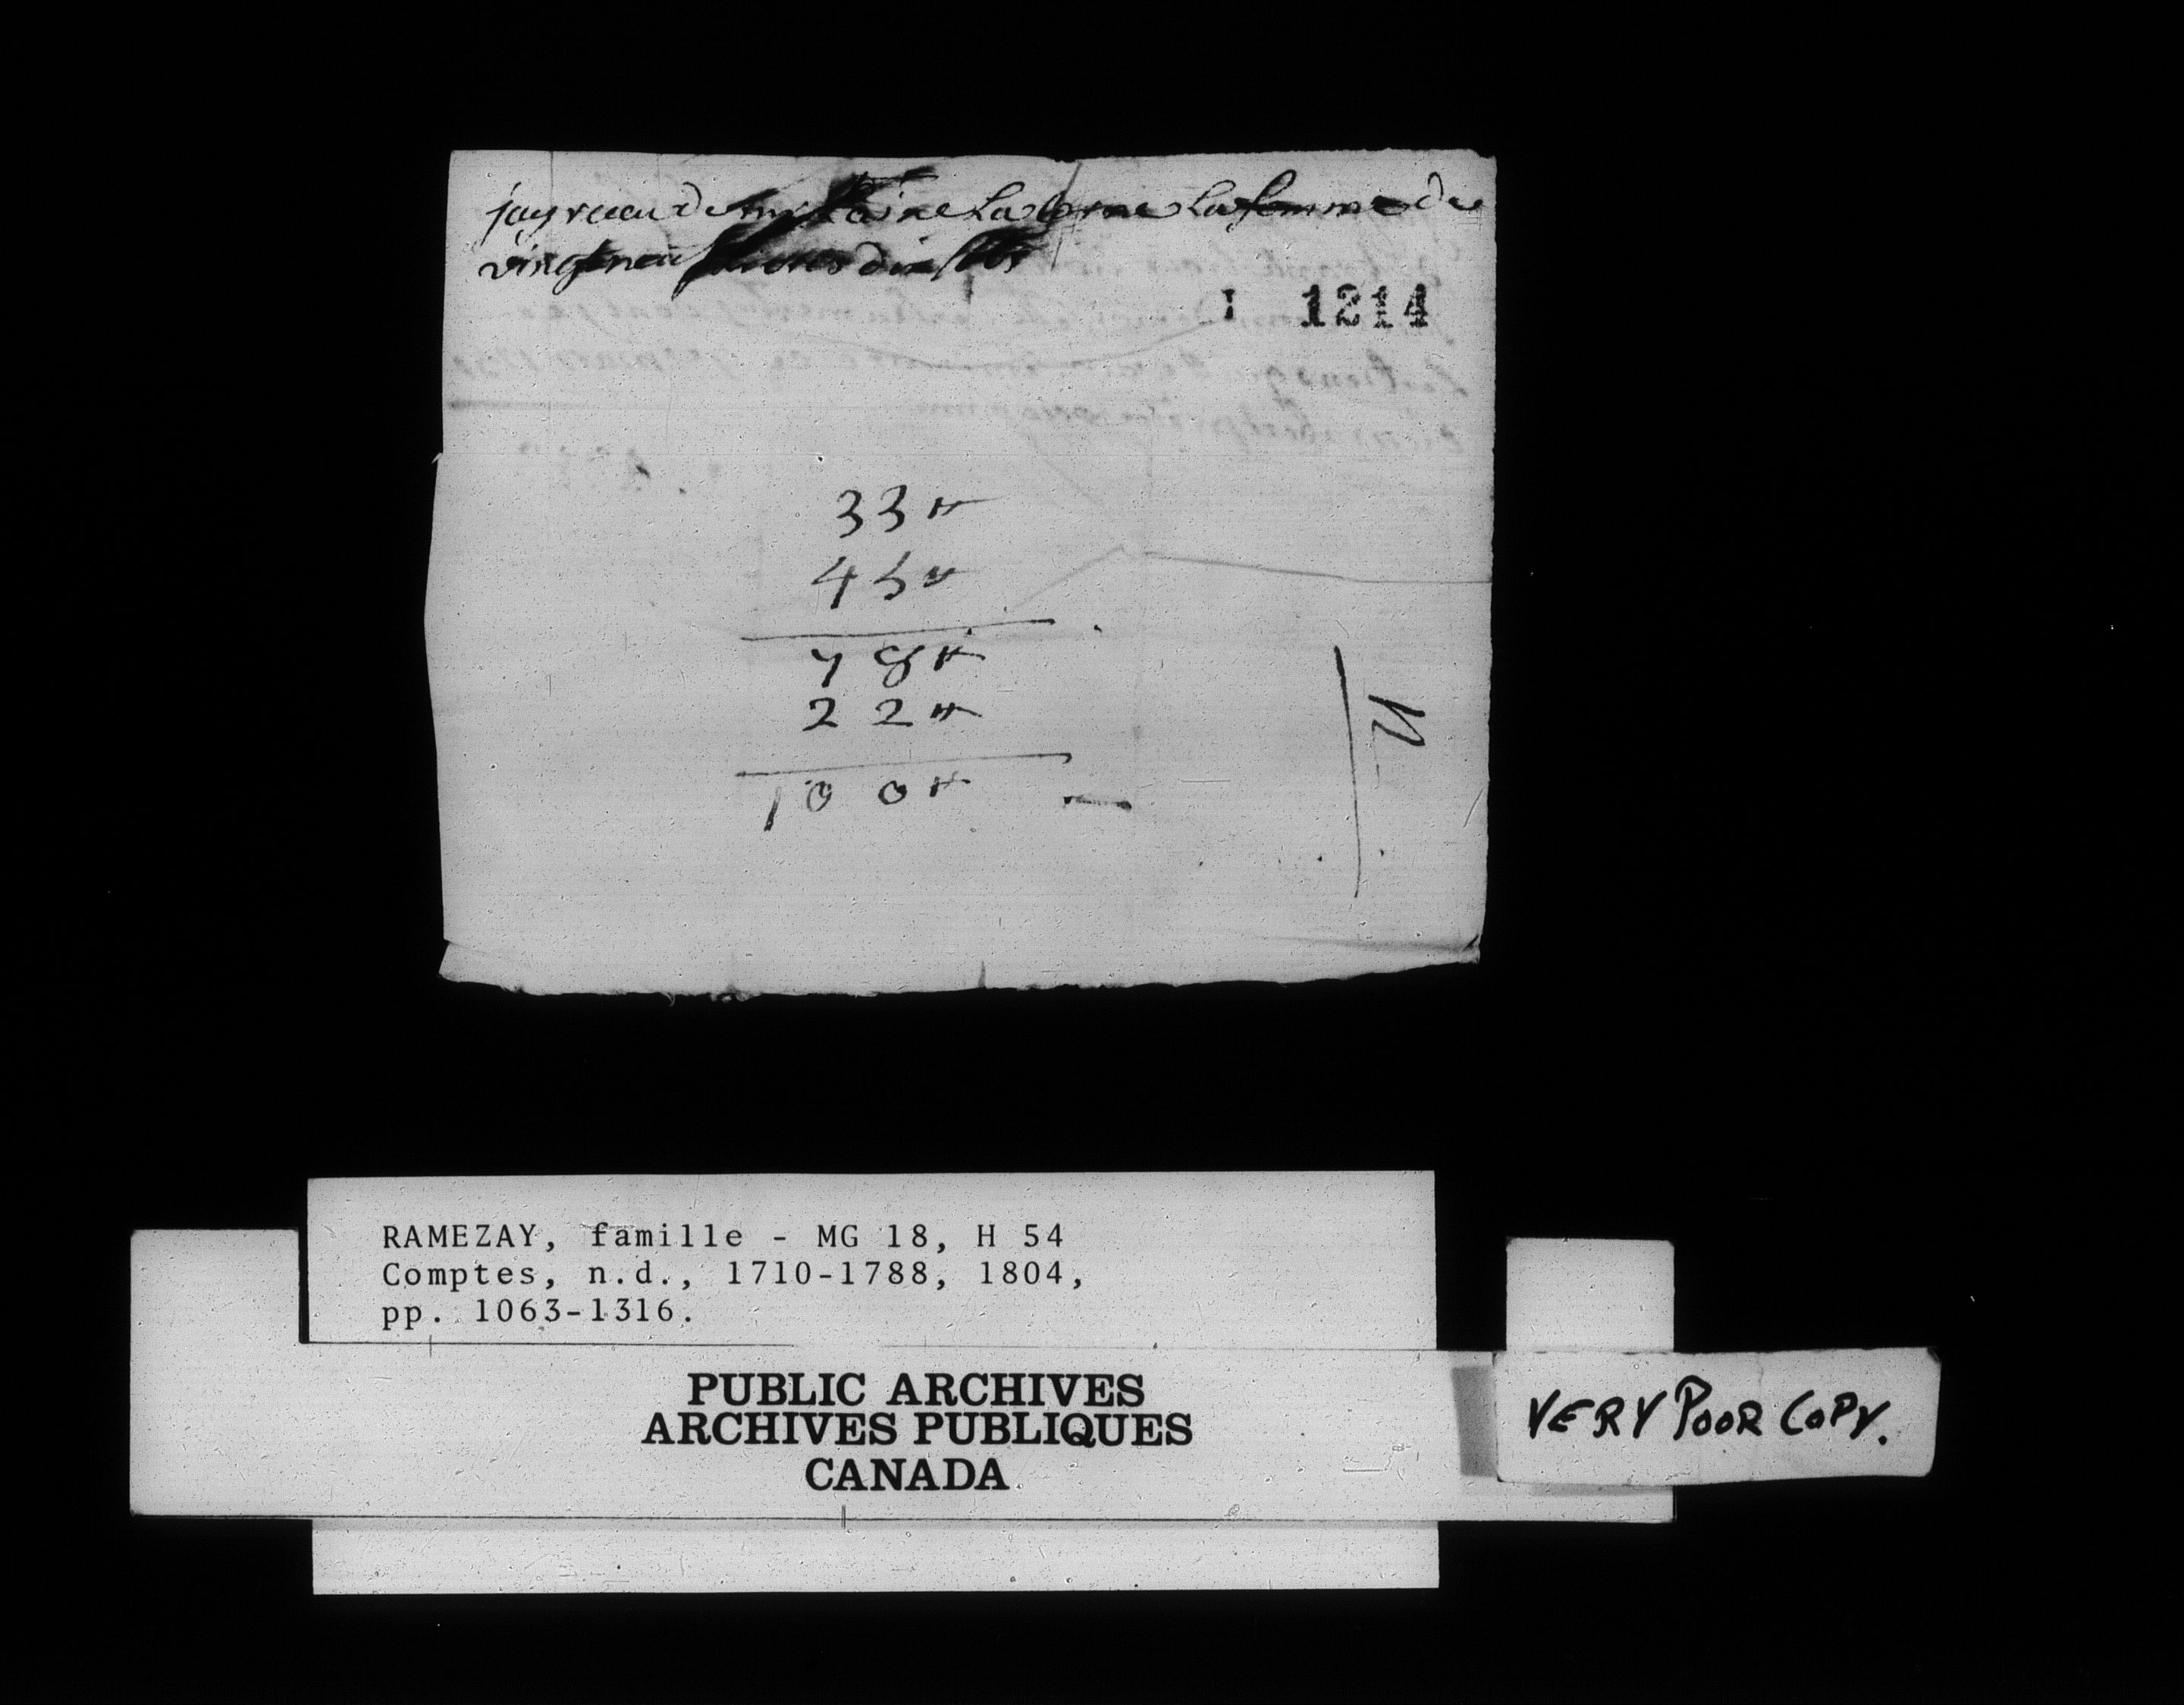 jay receu de mr Laine La Corne La somme de
vingt neuf livres dix sols
1 1214
33 ₶
45 ₶
78 ₶
22 ₶
100 ₶
RAMEZAY, famille - MG 18, H 54
Comptes, n.d., 1710-1788, 1804,
pp. 1063-1316.
PUBLIC ARCHIVES
ARCHIVES PUBLIQUES
CANADA
VERY POOR COPY.